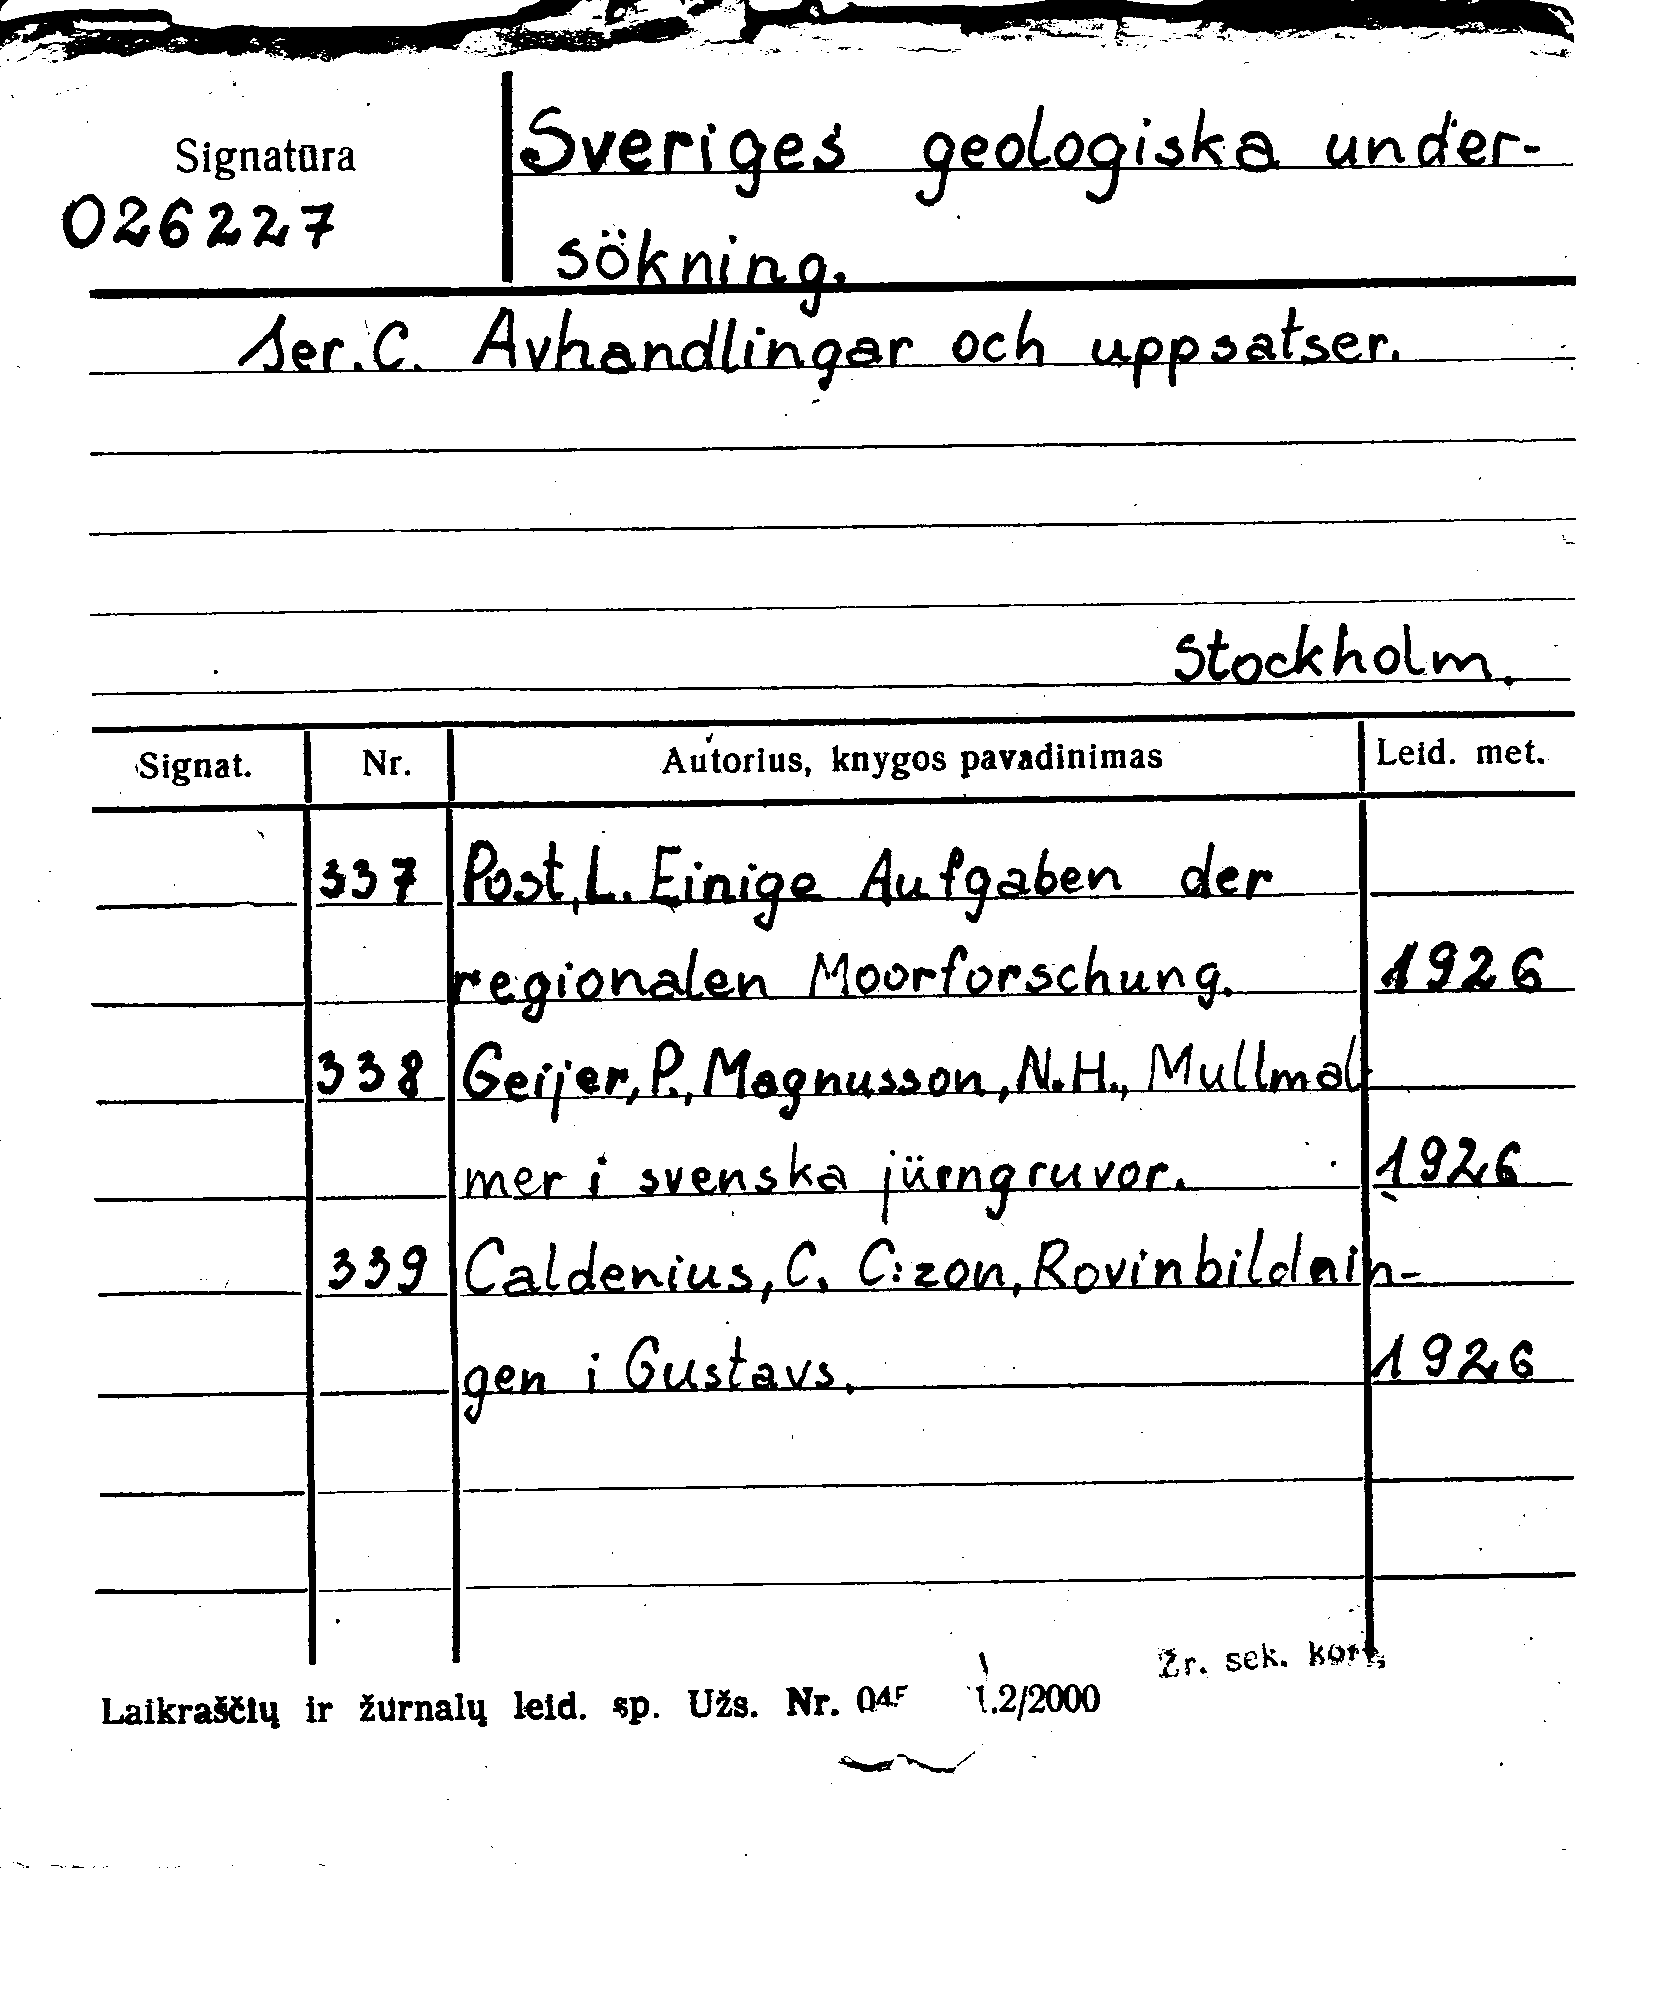 Signatūra
026227
Sveriges geologiska under-
sökning.
Ser. C. Avhandlingar och uppsatser.
Stockholm.
Signat. Nr. Autorius, knygos pavadinimas Leid. met.
337 Post, L. Einige Aufgaben der
regionalen Moorforschung. 1926
338 Geijer, P., Magnusson, N.H., Mullmal
mer i svenska jürngruvor. 1926
339 Caldenius, C. C:zon, Rovinbildnin-
gen i Gustavs. 1926
Žr. sek. kort.
Laikraščių ir žurnalų leid. sp. Užs. Nr. 1.2/2000